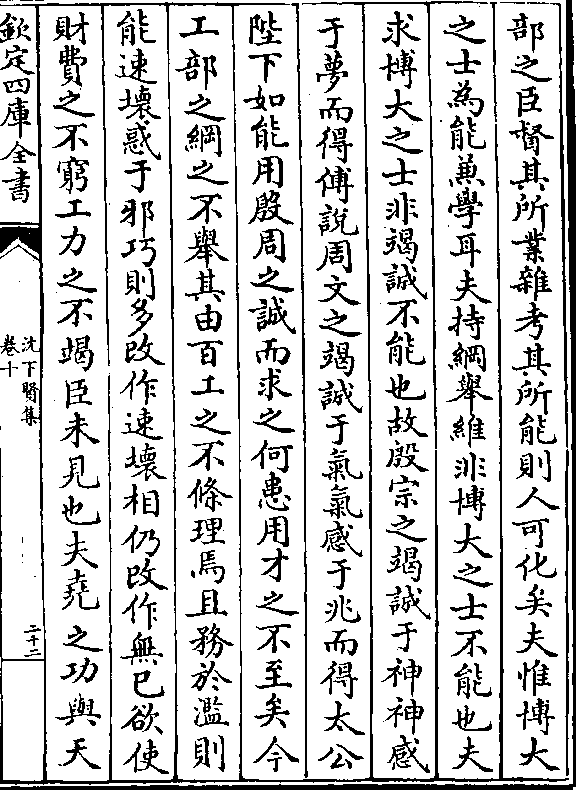 部之臣督其所業雜考其所能則人可化矣夫惟博大
之士為能兼學耳夫持綱舉維非博大之士不能也夫
求博大之士非竭誠不能也故殷宗之竭誠于神神感
于夢而得傅說周文之竭誠于氣氣感于兆而得太公
陛下如能用殷周之誠而求之何患用才之不至矣今
工部之綱之不舉其由百工之不條理焉且務於濫則
能速壞惑于邪巧則多改作速壞相仍改作無已欲使
財費之不窮工力之不竭臣未見也夫堯之功與天
欽定四庫全書
沈下賢集
卷十
二十二